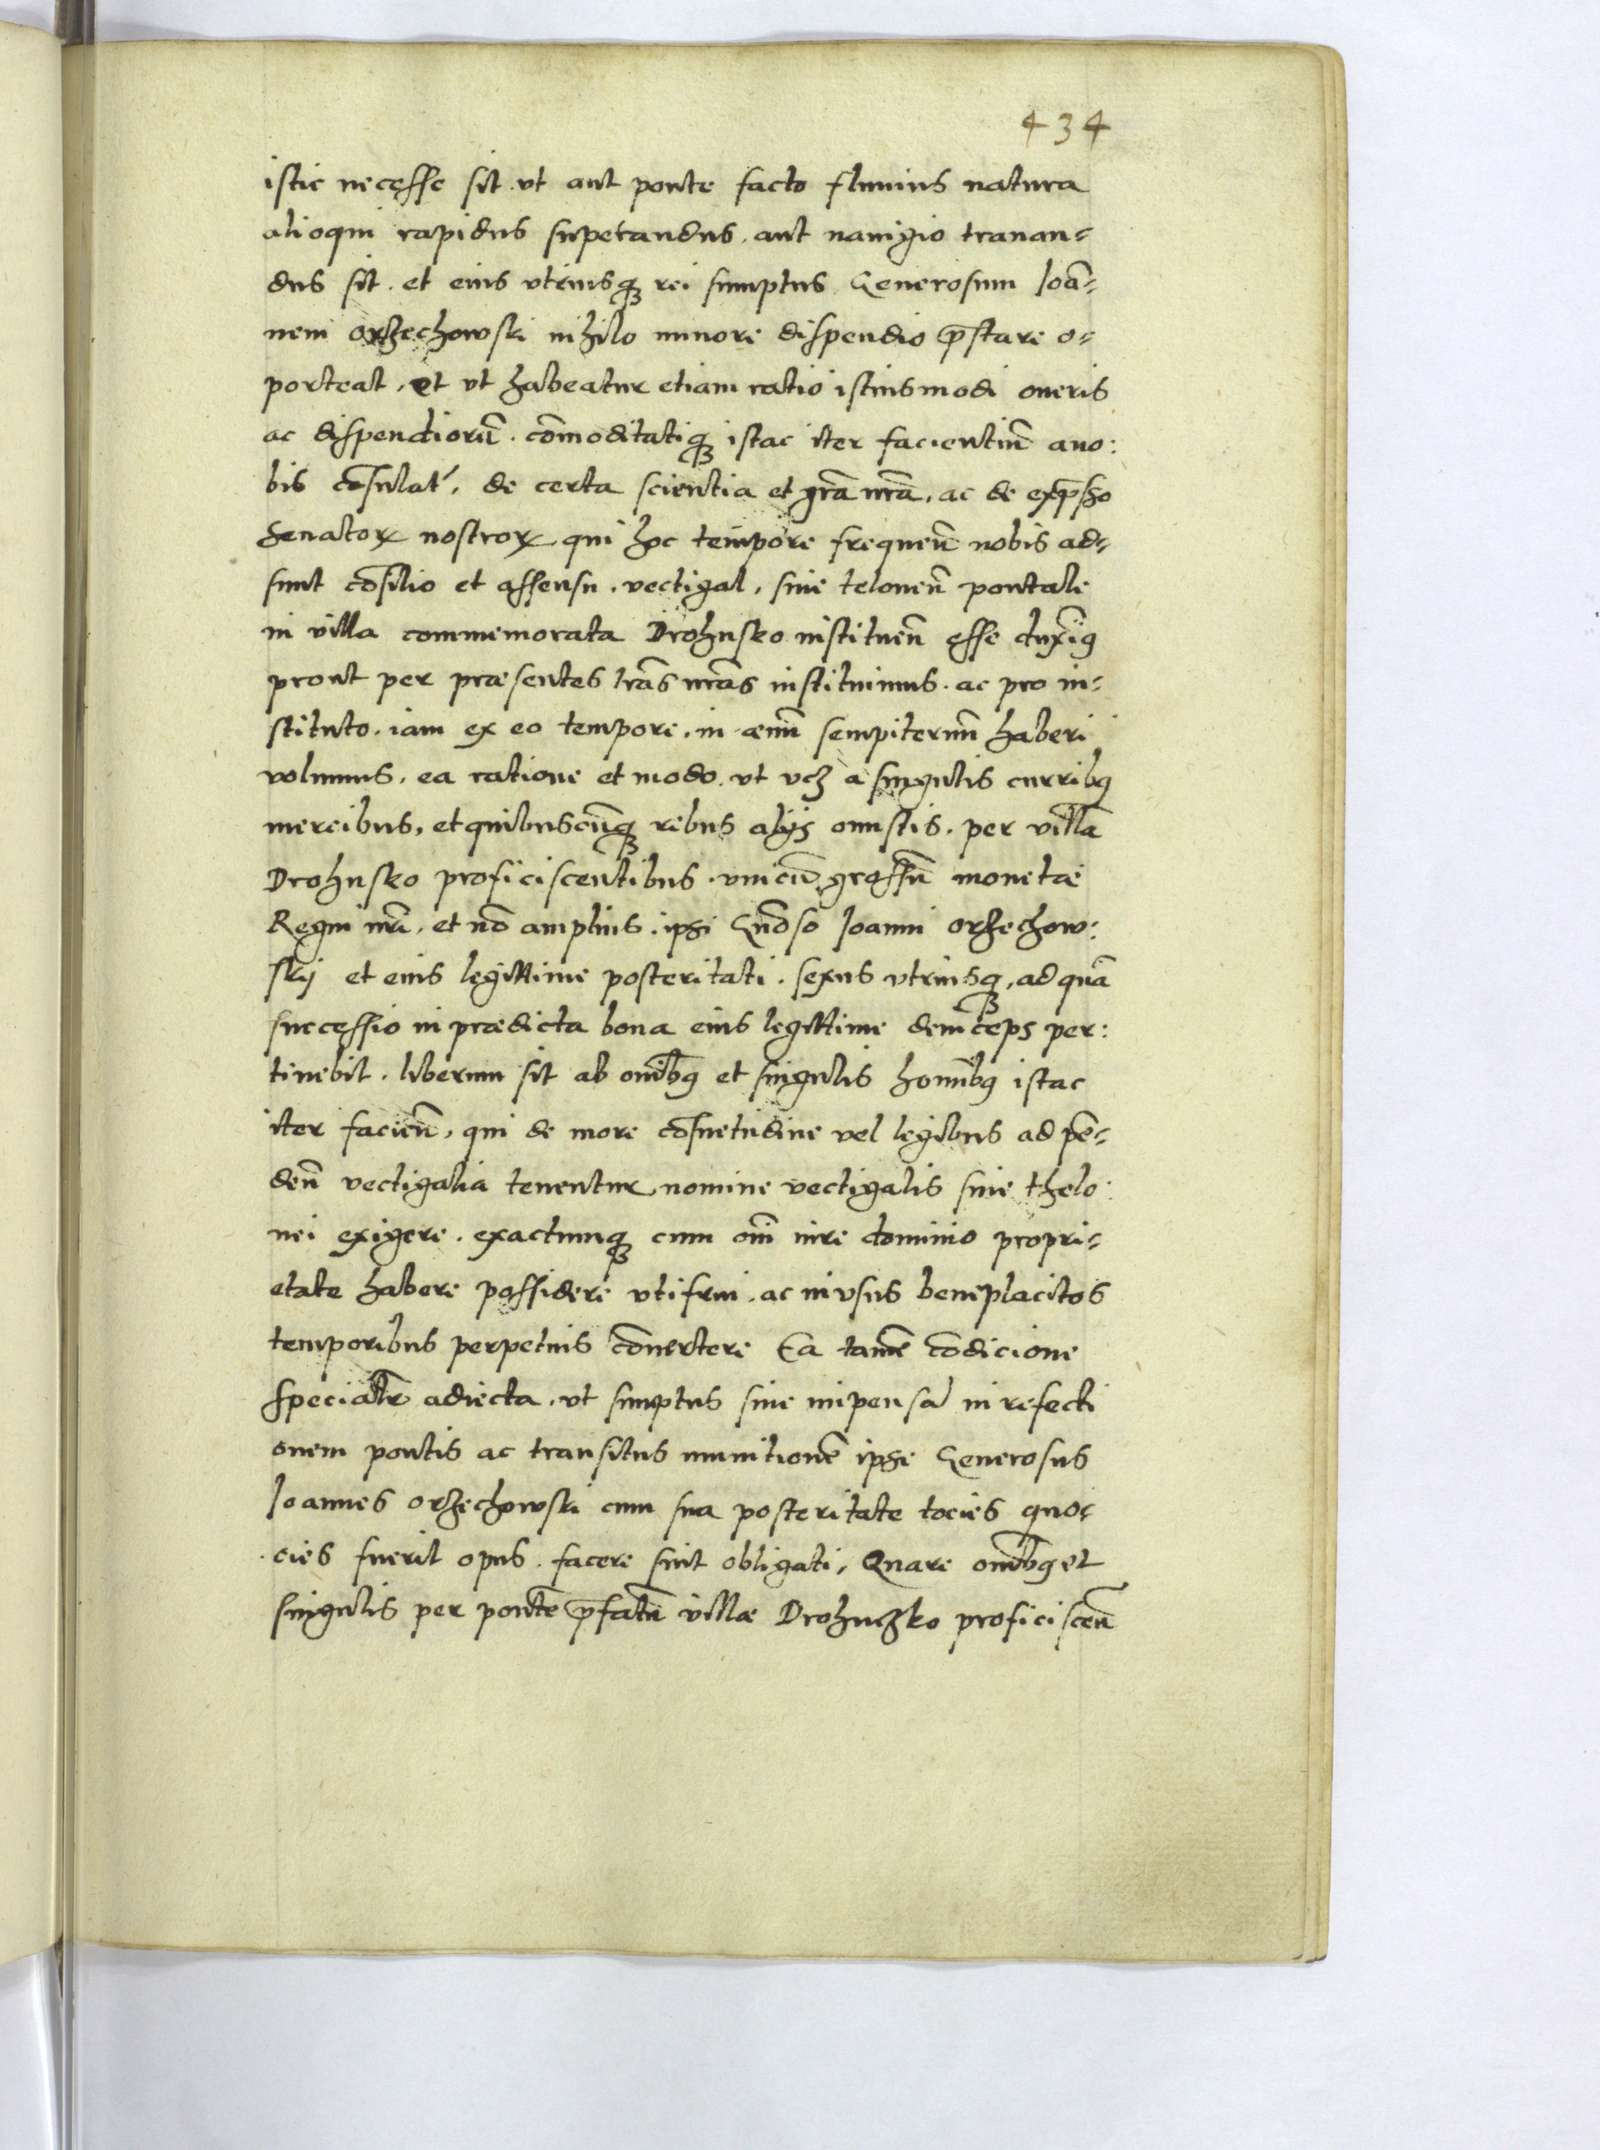 434
istic necesse sit. vt aut ponte facto fluuius natura
alioqui rapidus superandus. aut nauigio tranan-
dus sit. et eius vtriusq̃ rei sumptus Generosum Ioã-
nem orzechowski nihilo minore dispendio p̃stare o-
porteat. et vt habeatur etiam ratio istiusmodi oneris
ac dispendiorũ. cõmoditatiq̃ istac iter facientiũ a no:
bis cõsulat᷑. de certa scientia et grã nrã. ac de exp̃sso
senatoꝝ nostroꝝ qui hoc tempore frequeñ nobis ad-
sunt cõsilio et assensu. vectigal. siue teloneũ pontale
in villa commemorata Drohusko instituẽn esse duxim9
prout per præsentes lrãs nrãs instituimus. ac pro in-
stituto. iam ex eo tempore. in æuũ sempiternũ haberi
volumus. ea ratione et modo. vt vcz a singulis curribꝯ
mercibus, et quibuscũq̃ rebus alijs onustis. per villã
Drohusko proficiscentibus. vnicũ grossũ monetæ
Regni nrĩ. et nõ amplius. ipsi Gñoso Ioanni orzechow:
skij et eius legittime posteritati. sexus vtriusq̃, ad quã
successio in prædicta bona eius legittime deinceps per:
tinebit. liberum sit ab omĩbꝯ et singulis hominibꝯ istac
iter facieñ, qui de more cõsuetudine vel legibus ad pẽ-
deñ vectigalia tenentur, nomine vectigalis siue thelo:
nei exigere. exactumq̃ cum omĩ iure dominio propri-
etate habere possidere vti frui. ac in vsus beneplacitos
temporibus perpetuis cõuertere Ea tamẽ cõdicione
specialr̃ adiecta. vt sumptus siue impensa in refecti
onem pontis ac transitus munitionẽ ipse Generosus
Ioannes orzechowski cum sua posteritate tocies quo-
cies fuerit opus. facere sint obligati, Quare omĩbꝯ et
singulis per pontẽ p̃fatũ villæ Drohuczko proficisceñ